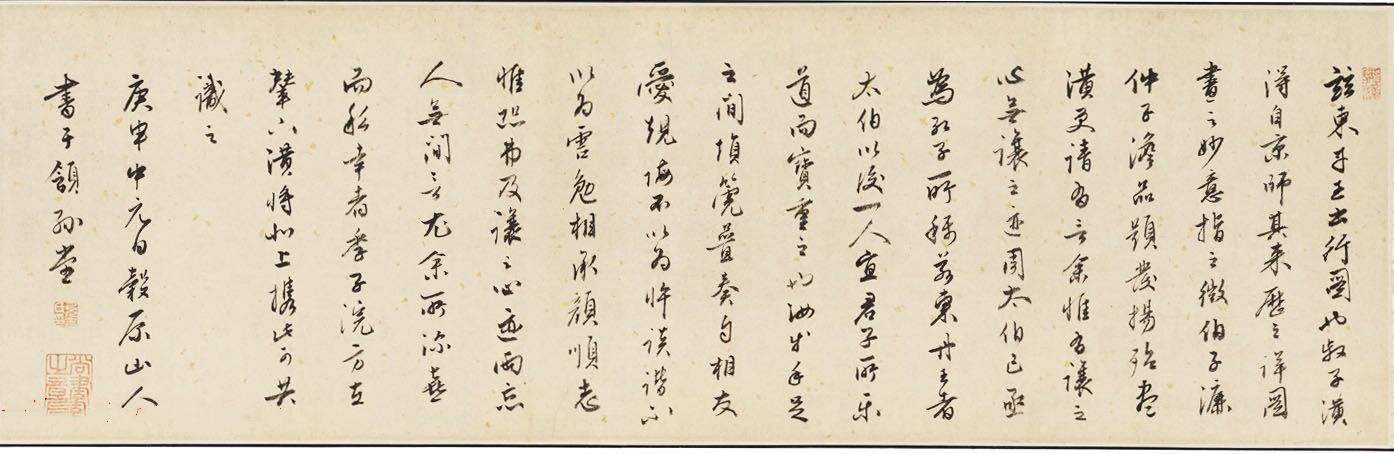 兹東丹王出行圖也叔子潢
得自京師其来歷之詳圖
畫之妙意指之微伯子濂
仲子澹品題發揚殆盡
潢更請為言余惟為讓之
心無讓之迹周太伯已亟
為孔子所稱若東丹王者
太伯以後一人宜君子所樂
道而寶重之也汝等手足
之間塤箎疊奏自相友
愛規誨不以為忤談谐不
以為虐勉相承顔順志
惟恐弗及讓之心迹兩忘
人無間言尤余所深喜
而私幸者孝子浣方在
輦下潢將北上攜此可共
識之
庚申中元日穀原山人
書于頷孫堂